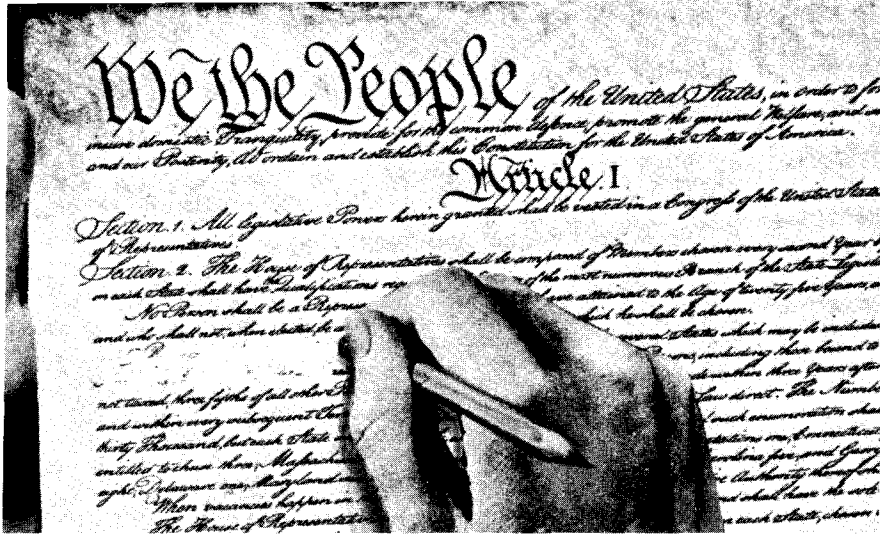 We the People of the United States, in order to for
insure domestic Tranquility, provide for the common defence, promote the general Welfare, and
and our Posterity, do ordain and establish this Constitution for the United States of America.
Article. I
Section. 1. All legislative Powers herein granted shall be vested in a Congress of the United States
of Representatives.
Section. 2. The House of Representatives shall be composed of Members chosen every second Year
in each State shall have Qualifications req of the most numerous Branch of the State Legisl
No Person shall be a Represe have attained to the Age of twenty five Years,
and who shall not, when elected, be a which he shall be chosen.
several States which may be included
including those bound to
within three Years after
not taxed, three fifths of all other Law direct. The Number
and within every subsequent such enumeration shal
thirty Thousand, but each State
entitled to chuse three, Massach
eight, Delaware one, Maryland Authority thereof shal
When vacancies happen in shall have the sole
The House of Representati each State, chosen